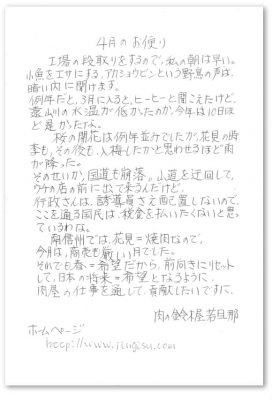 4月のお便り
工場の段取りをするので、私の朝は早い。
小魚をエサにする、アカショウビンという野鳥の声は、
暗い内に聞けます。
例年だと、3月に入ると、ヒーヒーと聞こえたけど、
遠山川の水温が低かったのか、今年は10日ほ
ど遅かったよ。
桜の開花は例年並みでしたが、花見の時
季も、その後も、入梅したかと思わせるほど雨
が降った。
そのせいか、国道も崩落。小道を迂回して、
ウチの店の前に出て来るんだけど、
行政さんは、誘導員さえ配置しないので、
ここを通る国民は、税金を払いたくないと思っ
ているわな。
南信州では、花見=焼肉なので、
今月は、商売も厳しい月でした。
それでも春=希望だから、前向きにリセット
して、日本の将来=希望となるように、
肉屋の仕事を通して、貢献したいですに。
肉の鈴木屋 若旦那
ホームページ
http://www.jingisu.com